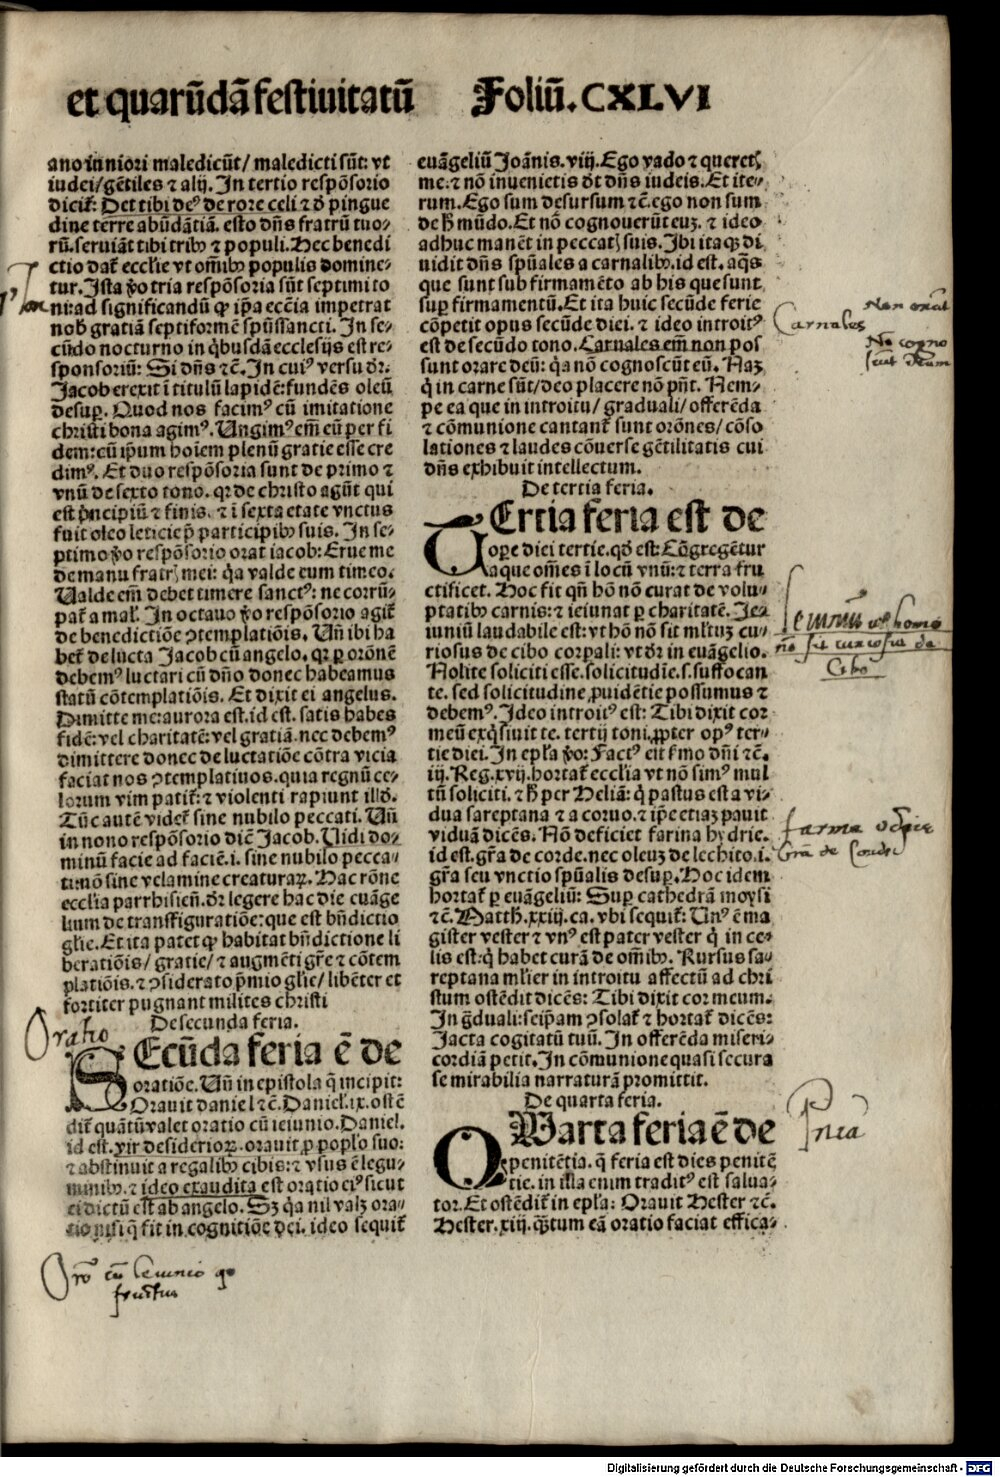 et quarũdã festiuitatũ Foliũ. CXLVI
ano in niori maledicũt/ maledicti sũt: vt
iudei/ gẽtiles ⁊ alij. In tertio respõsorio
dicit᷑: Det tibi deꝰ de rore celi ⁊ đ pingue
dine terre abũdãtiã. esto dñs fratrũ tuo⸗
rũ. seruiãt tibi tribꝰ ⁊ populi. Hec benedi
ctio dat᷑ ecclie vt oĩbꝰ populis domine⸗
tur. Ista ꝟo tria respõsoria sũt septimi to
ni: ad significandũ ꝙ ip̃a eccĩa impetrat
nob̃ gratiã septiformẽ spũssancti. In se⸗
cũdo nocturno in q̃busdã ecclesijs est re⸗
sponsoriũ: Si dñs ⁊c̃. In cuiꝰ versu dr̃.
Jacob erexit ĩ titulũ lapidẽ: fundẽs oleũ
desuꝑ. Quod nos facimꝰ cũ imitatione
christi bona agimꝰ. Ungimꝰ em̃ eũ per fi
dem: cũ ip̃um hoĩem plenũ gratie esse cre
dimꝰ. Et duo respõsoria sunt de primo ⁊
vnũ de sexto tono. qꝛ de christo agũt qui
est p̃ncipiũ ⁊ finis. ⁊ ĩ sexta etate vnctus
fuit oleo leticie p̃ participibꝰ suis. In se⸗
ptimo ꝟo respõsorio orat iacob: Erue me
de manu fratrꝭ mei: q̃a valde eum timeo.
Ualde em̃ debet timere sanctꝰ: ne corrũ⸗
pat᷑ a mal̃. In octauo ꝟo respõsorio agit᷑
de benedictiõe ꝯtemplatiõis. Uñ ibi ha
bet᷑ de lucta Jacob cũ angelo. qꝛ ꝑ orõnẽ
debemꝰ luctari cũ dño donec habeamus
statũ cõtemplatiõis. Et dixit ei angelus.
Dimitte me: aurora est. id est. satis habes
fidẽ: vel charitatẽ: vel gratiã. nec debemꝰ
dimittere donec de luctatiõe cõtra vicia
faciat nos ꝯtemplatiuos. quia regnũ ce⸗
lorum vim patit᷑: ⁊ violenti rapiunt illđ.
Tũc autẽ videt᷑ sine nubilo peccati. Uñ
in nono respõsorio diẽ Jacob. Uidi do⸗
minũ facie ad faciẽ. i. sine nubilo pecca⸗
ti: nõ sine velamine creaturaꝝ. Hac rõne
ecclia parrhisieñ. dr̃ legere hac die euãge
lium de transfiguratiõe: que est bñdictio
gl̃ie. Et ita patet ꝙ habitat bñdictione li
beratiõis/ gratie/ ⁊ augmẽti gr̃e ⁊ cõtem
platiõis. ⁊ ꝯsiderato p̃mio gl̃ie/ libẽter et
fortiter pugnant milites christi
De secunda feria.
SEcũda feria ẽ de
oratiõe. Uñ in epistola q̃ incipit:
Orauit daniel ⁊c̃. Daniel. ix. ostẽ
dit᷑ quãtũ valet oratio cũ ieiunio. Daniel.
id est. vir desiderioꝝ. orauit ꝓ pop̃lo suo:
⁊ abstinuit a regalibꝰ cibis: ⁊ vsus ẽ legu⸗
minibꝰ. ⁊ ideo exaudita est oratio eiꝰ sicut
ei dictũ est ab angelo. Sꝫ q̃a nil valꝫ ora⸗
tio nisi q̃ fit in cognitiõe dei. ideo sequit᷑
Oratio
Orõ cũ Ieiunio
fructus
euãgeliũ Joãnis. viij. Ego vado ⁊ queretꝭ
me. ⁊ nõ inuenietis đt dñs iudeis. Et ite⸗
rum. Ego sum desursum ⁊c̃. ego non sum
de h̃ mũdo. Et nõ cognouerũt euꝫ. ⁊ ideo
adhuc manẽt in peccatꝭ suis. Ibi itaqꝫ di
uidit dñs spũales a carnalibꝰ. id est. aq̃s
que sunt sub firmamẽto ab his que sunt
suꝑ firmamentũ. Et ita huic secũde ferie
cõpetit opus secũde diei. ⁊ ideo introitꝰ
est de secũdo tono. Carnales em̃ non pos
sunt orare deũ: q̃a nõ cognoscũt eũ. Naꝫ
q̃ in carne sũt/ deo placere nõ pñt. Nem⸗
pe ea que in introitu/ graduali/ offerẽda
⁊ cõmunione cantant᷑ sunt orõnes/ cõso
lationes ⁊ laudes cõuerse gẽtilitatis cui
dñs exhibuit intellectum.
De tertia feria.
TErtia feria est de
oꝑe diei tertie. qđ est: Cõgregẽtur
aque om̃es ĩ locũ vnũ: ⁊ terra fru
ctificet. Hoc fit qñ hõ nõ curat de volu⸗
ptatibꝰ carnis: ⁊ ieiunat ꝑ charitatẽ. Ie⸗
iuniũ laudabile est: vt hõ nõ sit ml̃tuꝫ cu⸗
riosus de cibo corꝑali: vt dr̃ in euãgelio.
Nolite soliciti esse. solicitudĩe. s. suffocan
te. sed solicitudine ꝓuidẽtie possumus ⁊
debemꝰ. Ideo introitꝰ est: Tibi dixit cor
meũ exq̃siuit te. tertij toni. ꝓpter opꝰ ter⸗
tie diei. In epl̃a ꝟo: Factꝰ eit s̃mo dñi ⁊c̃.
iij. Reg. xvij. hortat᷑ ecclĩa vt nõ simꝰ mul
tũ soliciti. ⁊ h̃ per Heliã: q̃ pastus est a vi⸗
dua sareptana ⁊ a coruo. ⁊ ip̃e etiaꝫ pauit
viduã dicẽs. Nõ deficiet farina hydrie.
id est. gr̃a de corde. nec oleuꝫ de lechito. i.
gr̃a seu vnctio spũalis desuꝑ. Hoc idem
hortat᷑ ꝑ euãgeliũ: Suꝑ cathedrã moysi
⁊c̃. Matth̃. xxiij. ca. vbi sequit᷑: Unꝰ ẽ ma
gister vester ⁊ vnꝰ est pater vester q̃ in ce⸗
lis est: q̃ habet curã de om̃ibꝰ. Rursus sa⸗
reptana ml̃ier in introitu affectũ ad chri
stum ostẽdit dicẽs: Tibi dixit cor meum.
In g̃duali: seip̃am ꝯsolat᷑ ⁊ hortat᷑ dicẽs:
Jacta cogitatũ tuũ. In offerẽda miseri⸗
cordiã petit. In cõmunione quasi secura
se mirabilia narraturã promittit.
De quarta feria.
QUarta feria ẽ de
penitẽtia. q̃ feria est dies penitẽ
tie. in illa enim traditꝰ est salua⸗
tor. Et ostẽdit᷑ in epl̃a: Orauit Hester ⁊c̃.
Hester. xiij. q̃tum eã oratio faciat effica⸗
Carnales
Non
Nõ cogno
scũt deum
Ieiuniũ vt homo
nõ sit curiosus de
Cibo
farina
Grã de Corde
Pnĩa
Digitalisierung gefördert durch die Deutsche Forschungsgemeinschaft - DFG